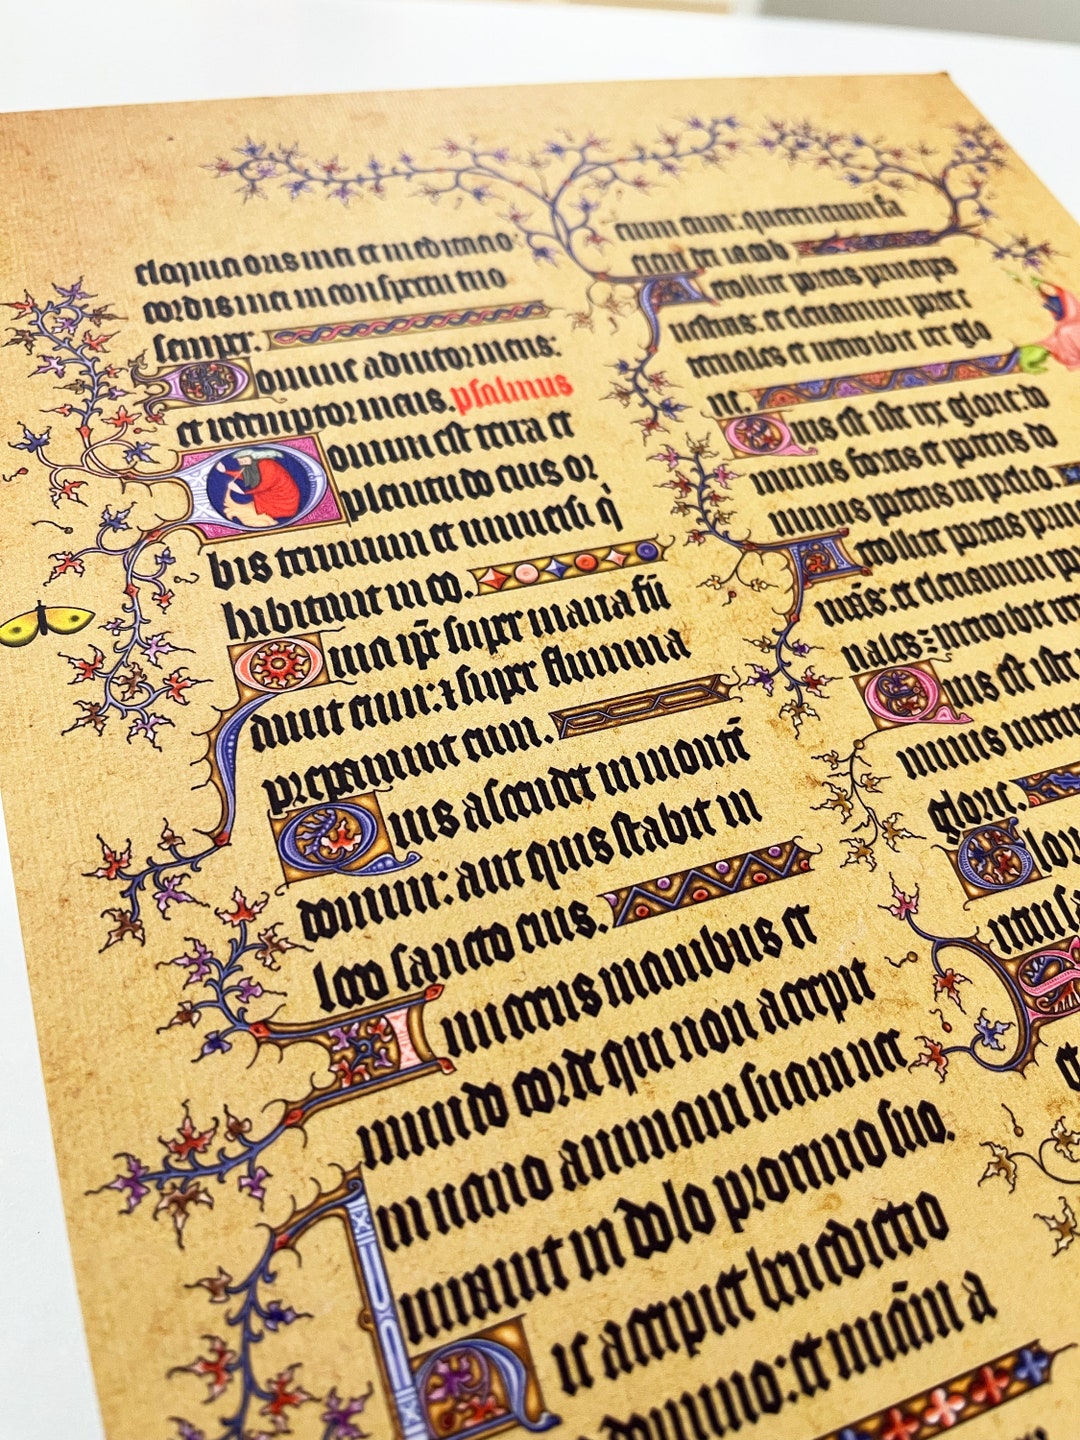 eloquia oris mei et meditatio
cordis mei in conspectu tuo
semper.
Domine adiutor meus:
et redemptor meus. psalmus
Domini est terra et
plenitudo eius or
bis terrarum et uniuersi q̇
habitant in eo.
Quia ip̄e super maria fū
dauit eum: ⁊ super flumina
preparauit eum.
Quis ascendet in montē
domini: aut quis stabit in
loco sancto eius.
Innocens manibus et
mundo corde qui non accepit
in uano animam suam nec
iurauit in dolo proximo suo.
Hic accipiet benedictio
a domino: et miām a
eum: querentium fa
ciem dei iacob
Attollite portas principes
uestras: et eleuamini porte
eternales et introibit rex glo
rie.
Quis est iste rex glorie: do
minus fortis et potens do
minus potens in prelio.
Attollite portas princ
et eleuamini po
nales: introibit rex
Quis est iste
minus
glorie.